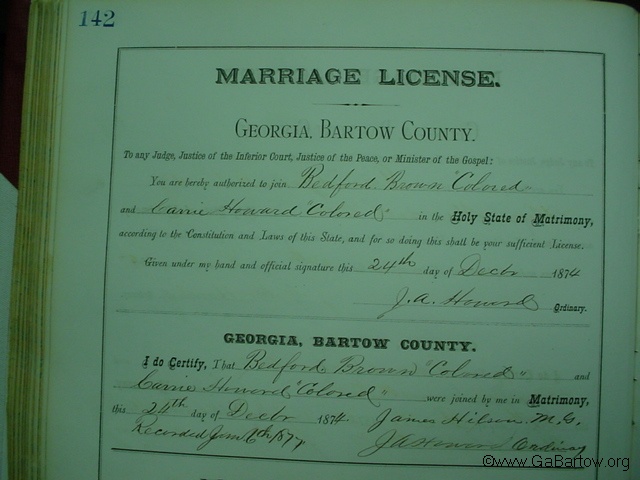 142
MARRIAGE LICENSE.
GEORGIA, BARTOW COUNTY.
To any Judge, Justice of the Inferior Court, Justice of the Peace, or Minister of the Gospel:
You are hereby authorized to join Bedford Brown "Colored"
and Carrie Howard "Colored" in the Holy State of Matrimony,
according to the Constitution and Laws of this State, and for so doing this shall be your sufficient License.
Given under my hand and official signature this 24th day of Decbr 1874
J. A. Howard Ordinary.
GEORGIA, BARTOW COUNTY.
I do Certify, That Bedford Brown "Colored" and
Carrie Howard "Colored" were joined by me in Matrimony,
this 24th day of Decbr 1874 James Hilson. M. G.
Recorded J A Howard Ordinary
©www.GaBartow.org